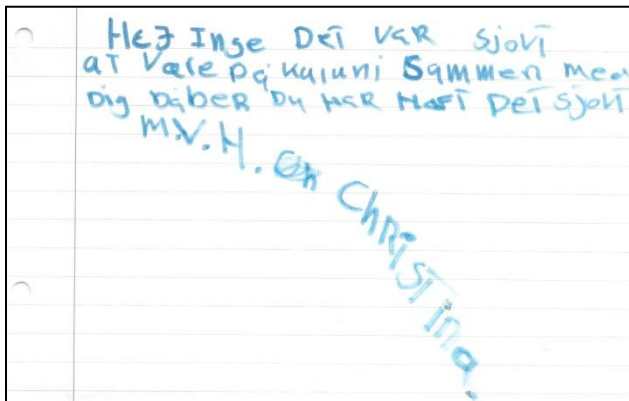 Hej Inge Det var sjovt
at være på kuluni sammen med
Dig håber Du har Haft Det sjovt
M.V.H.
Christina.